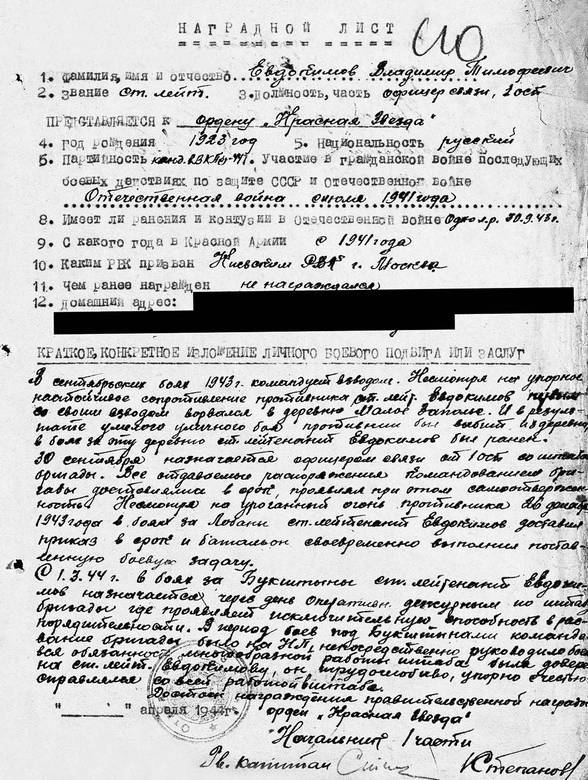 НАГРАДНОЙ ЛИСТ
1. Фамилия, имя и отчество Евдокимов Владимир Тимофеевич
2. Звание ст. лейт. 3. Должность, часть офицер связи, 1 ост
ПРЕДСТАВЛЯЕТСЯ к ордену „Красная Звезда"
4. год рождения 1923 год 5. Национальность русский
6. Партийность канд. ВКП(б) Участие в гражданской войне последующих
боевых действиях по защите СССР и отечественной войне
Отечественная война с июля 1941 года
8. Имеет ли ранения и контузии в Отечественной войне Одно л.р. 30.9.43 г.
9. С какого года в Красной Армии с 1941 года
10. Каким РВК призван Киевским РВК г. Москва
11. Чем ранее награжден не награждался
12. Домашний адрес:
КРАТКОЕ, КОНКРЕТНОЕ ИЗЛОЖЕНИЕ ЛИЧНОГО БОЕВОГО ПОДВИГА ИЛИ ЗАСЛУГ
В сентябрьских боях 1943 г. командует взводом. Несмотря на упорное
настойчивое сопротивление противника ст. лейт. Евдокимов первым
со своим взводом ворвался в деревню Малое Заполье. И в резуль
тате умелого уличного боя противник был выбит из деревни
в боях за эту деревню ст. лейтенант Евдокимов был ранен.
30 сентября назначается офицером связи от 1 ост со штаба
бригады. Все отдаваемые распоряжения командованием бри
гады доставлялись в срок, проявляя при этом самоотвержен
ность. Несмотря на ураганный огонь противника 20 декабря
1943 года в боях за Лобани ст. лейтенант Евдокимов доставил
приказ в срок и батальон своевременно выполнил постав
ленную боевую задачу.
С 1.3.44 г. в боях за Букштыны ст. лейтенант Евдоки
мов назначается через день оператив. дежурным по штабу
бригады где проявляет исключительную способность в рас
порядительности. В период боев под Букштынами командо
вание бригады было на НП, непосредственно руководило боем
вся обязанность многообразной работы штаба была доверена
на ст. лейт. Евдокимову, он трудолюбиво, упорно и честно
справлялся со всей работой в штабе.
Достоин награждения правительственной наградой
" " апреля 1944 г. орден „Красная Звезда"
Начальник 1 части
Гв. капитан Степанов